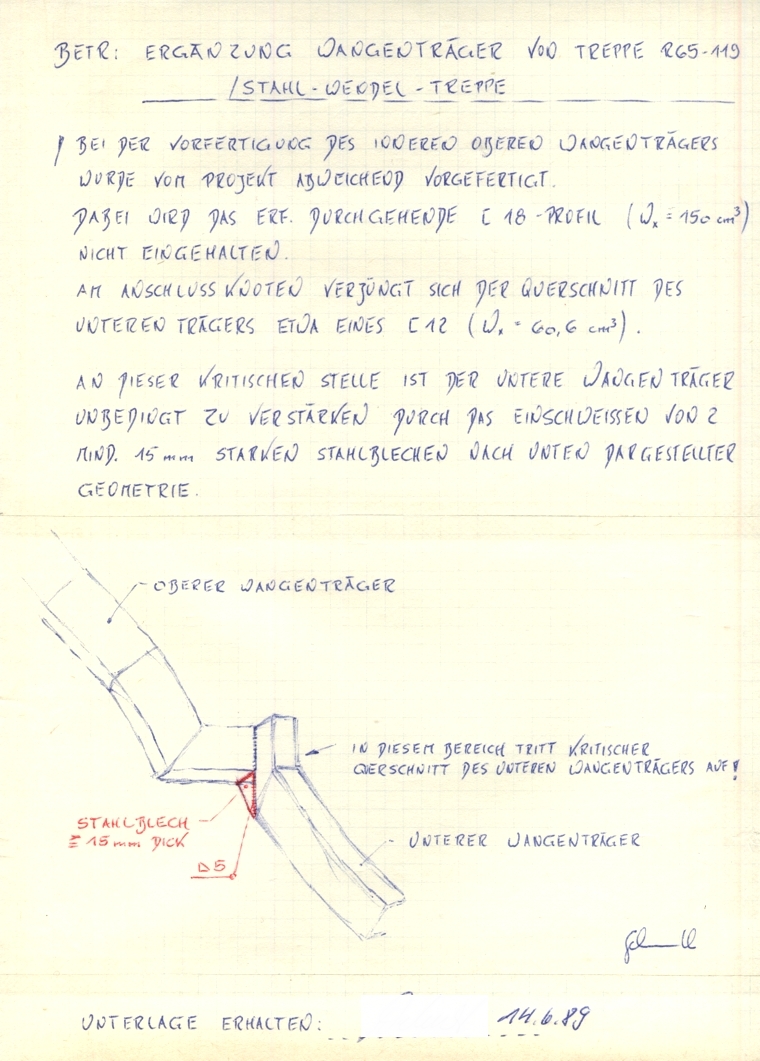 BETR: ERGÄNZUNG WANGENTRÄGER VON TREPPE R65-119
/STAHL-WENDEL-TREPPE
BEI DER VORFERTIGUNG DES INNEREN OBEREN WANGENTRÄGERS
WURDE VOM PROJEKT ABWEICHEND VORGEFERTIGT.
DABEI WIRD DAS ERF. DURCHGEHENDE [ 18-PROFIL (Wx = 150 cm³)
NICHT EINGEHALTEN.
AM ANSCHLUSSKNOTEN VERJÜNGT SICH DER QUERSCHNITT DES
UNTEREN TRÄGERS ETWA EINES [ 12 (Wx = 60,6 cm³).
AN DIESER KRITISCHEN STELLE IST DER UNTERE WANGENTRÄGER
UNBEDINGT ZU VERSTÄRKEN DURCH DAS EINSCHWEISSEN VON 2
MIND. 15 mm STARKEN STAHLBLECHEN NACH UNTEN DARGESTELLTER
GEOMETRIE.
OBERER WANGENTRÄGER
IN DIESEM BEREICH TRITT KRITISCHER
QUERSCHNITT DES UNTEREN WANGENTRÄGERS AUF!
STAHLBLECH
≧ 15 mm DICK
⊿5
UNTERER WANGENTRÄGER
UNTERLAGE ERHALTEN: 14.6.89